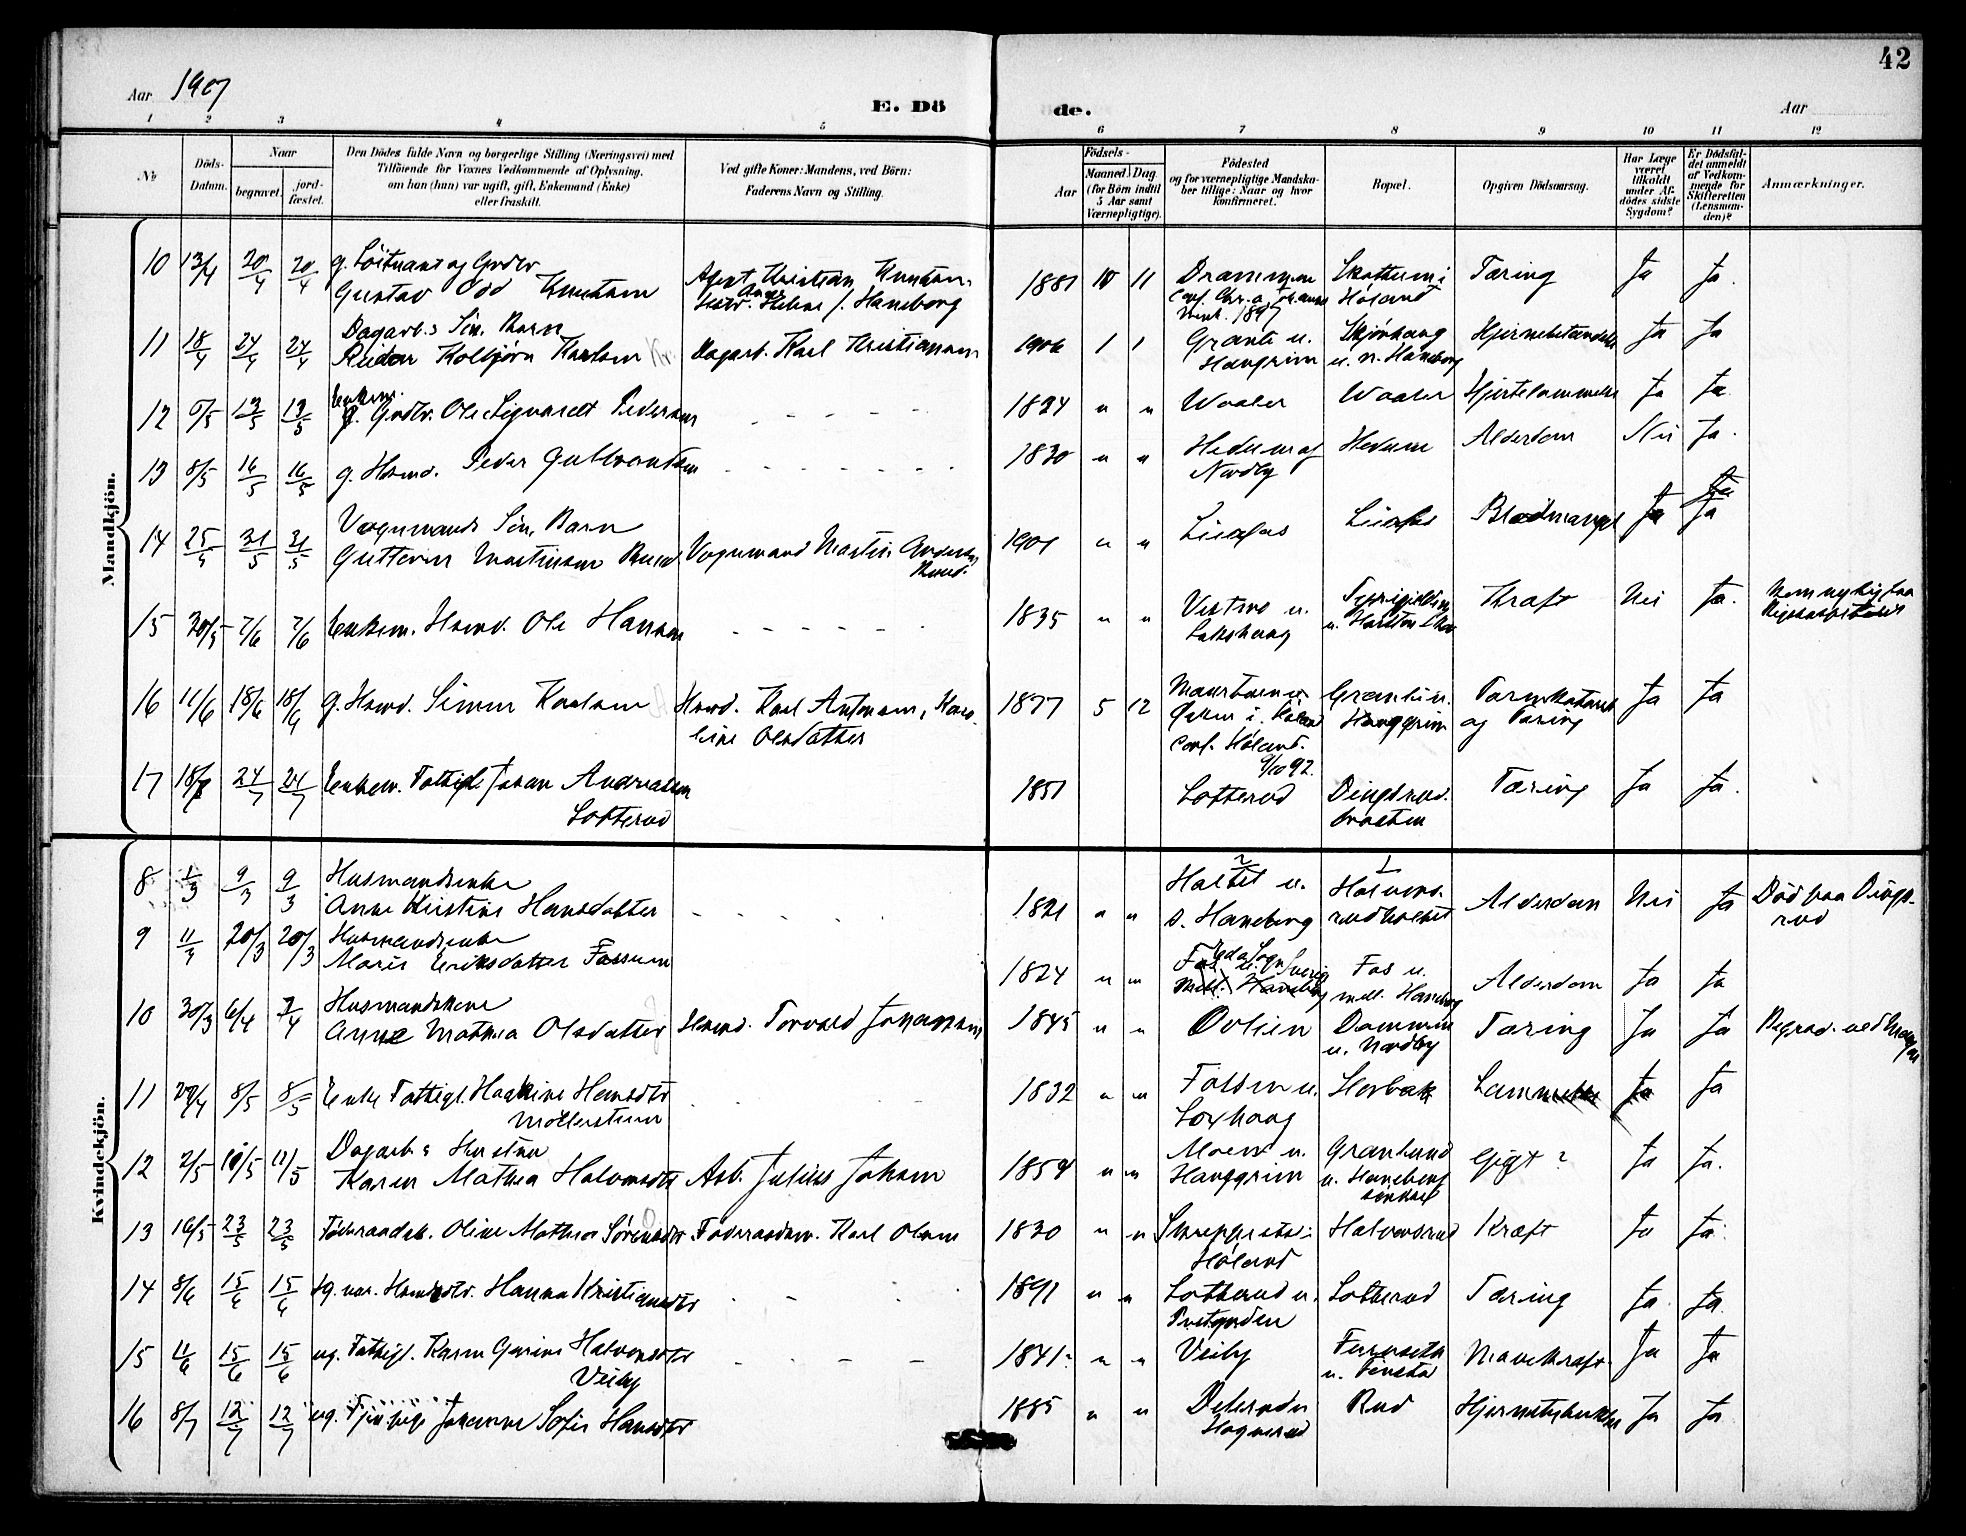 42
Aar 1907
E. Dö de.
Aar
1 2 3 4 5 6 7 8 9 10 11 12
№ Döds-Datum. Naar begravet. jord-fæstet.
Den Dödes fulde Navn og borgerlige Stilling (Næringsvei) med
Tilföiende for Voxnes Vedkommende af Oplysning,
om han (hun) var ugift, gift, Enkemand (Enke)
eller fraskilt.
Ved gifte Koner: Mandens, ved Börn:
Faderens Navn og Stilling.
Födsels-
Aar Maaned Dag
(for Börn indtil
5 Aar samt
Værnepligtige).
Födested
og for værnepligtige Mandska-
ber tillige: Naar og hvor
konfirmeret.
Bopæl.
Opgiven Dödsaarsag.
Har Læge
været
tilkaldt
under Af-
dödes sidste
Sygdom?
Er Dödsfal-
det anmeldt
af Vedkom-
mende for
Skifteretten
(Lensman-
den)?
Anmærkninger.
Mandkjön.
10 13/4 20/4 20/4 g. Löitnant og Grdbr
Gustav Odd Knutsen
Agent Kristian Knutsen
Helene f. Haneborg
1881 10 11 Drammen
1897
Skattum i
Höland
Tæring Ja Ja
11 18/4 24/4 24/4 Dagarb.s Sön, Barn
Reidar Kolbjörn Karlsen Dagarb. Karl Kristiansen 1906 1 1 Granli u.
Hangrim u. n. Haneborg Ja Ja
12 5/5 13/5 13/5 Enkem.
Grdbr. Ole Sigvardt Pedersen - - - - 1824 " " Waaler Waaler Hjertelammelse Ja Ja
13 8/5 16/5 16/5 g. Hsmd. Peder Gulbrandsen - - - - 1830 " " Hedum af
Nordby Hedum Alderdom Nei Ja.
14 25/5 31/5 31/5 Vognmands Sön, Barn
Guttorm Martinsen Ruud. Vognmand Martin Andersen
Ruud.
1901 " " Liaas Liaas Blodmangel Ja Ja
15 20/5 7/6 7/6 Enkem. Hsmd. Ole Hansen - - - - 1835 " " u.
Lakshaug
Kræft Nei Ja.
16 11/6 18/6 18/6 g. Hsmd. Simen Karlsen Hsmd. Karl Antonsen, Karo-
line Olsdatter
1877 5 12
Conf. Höland.
9/10 92.
Granli u.
Hanggrim
Tarmkatarrh
og Tæring Ja Ja
17 18/7 24/7 24/7 Enkem. Fattigl. Johan Andreassen
Lotterud
1851 Lotterud Dingsrud- Tæring Ja Ja.
Kvindekjön.
8 1/3 9/3 9/3 Husmandsenke
Anne Kristine Hansdatter - - - - 1821 " " u.
s. Haneborg Halvors-
rudholtet
Alderdom Nei Ja Död paa Dings-
rud
9 11/3 20/3 20/3 Husmandsenke
Maria Eriksdatter Fossum 1824 " " Fos u.
mell. Haneborg
Alderdom Ja Ja
10 30/3 6/4 7/4 Husmandskone
Anne Mathea Olsdatter Hsmd. Torvald Johansen 1845 " " Ovlien Dammen
u. Nordby
Tæring Ja Ja Begrav. ved
11 29/4 8/5 8/5 Enke Fattigl. Haakine Hansdtr
Möllerstuen
1832 " " Fossen u.
Loxhaug
Horbak Lammelse Ja Ja
12 2/5 10/5 11/5 Dagarb.s Hustru
Karen Mathea Halvorsdtr Arb. Julius Johnsen 1854 " " Moen u.
Hanggrim
Granlund
u. Haneborg
söndre
Gigt? Ja Ja.
13 16/5 23/5 23/5 Föderaadsk. Oline Mathea Sörensdtr Föderaadsm. Karl Olsen 1830 " "
Höland
Halvorsrud Kræft Ja Ja.
14 8/6 15/6 15/6 ug. Hsmdsdtr. Hanna Kristiansdtr - - - 1891 " " Lotterud u.
Prestgarden
Lotterud Tæring Ja Ja
15 11/6 15/6 15/6 ug. Fattigl. Karen Gurine Halvorsdtr
Veiby
- - - 1841. " " Veiby
u. Finstad
Mavekræft. Ja Ja
16 8/7 12/7 12/7 ug. Johanne Sofie Hansdtr 1885 " "
Rud Ja Ja